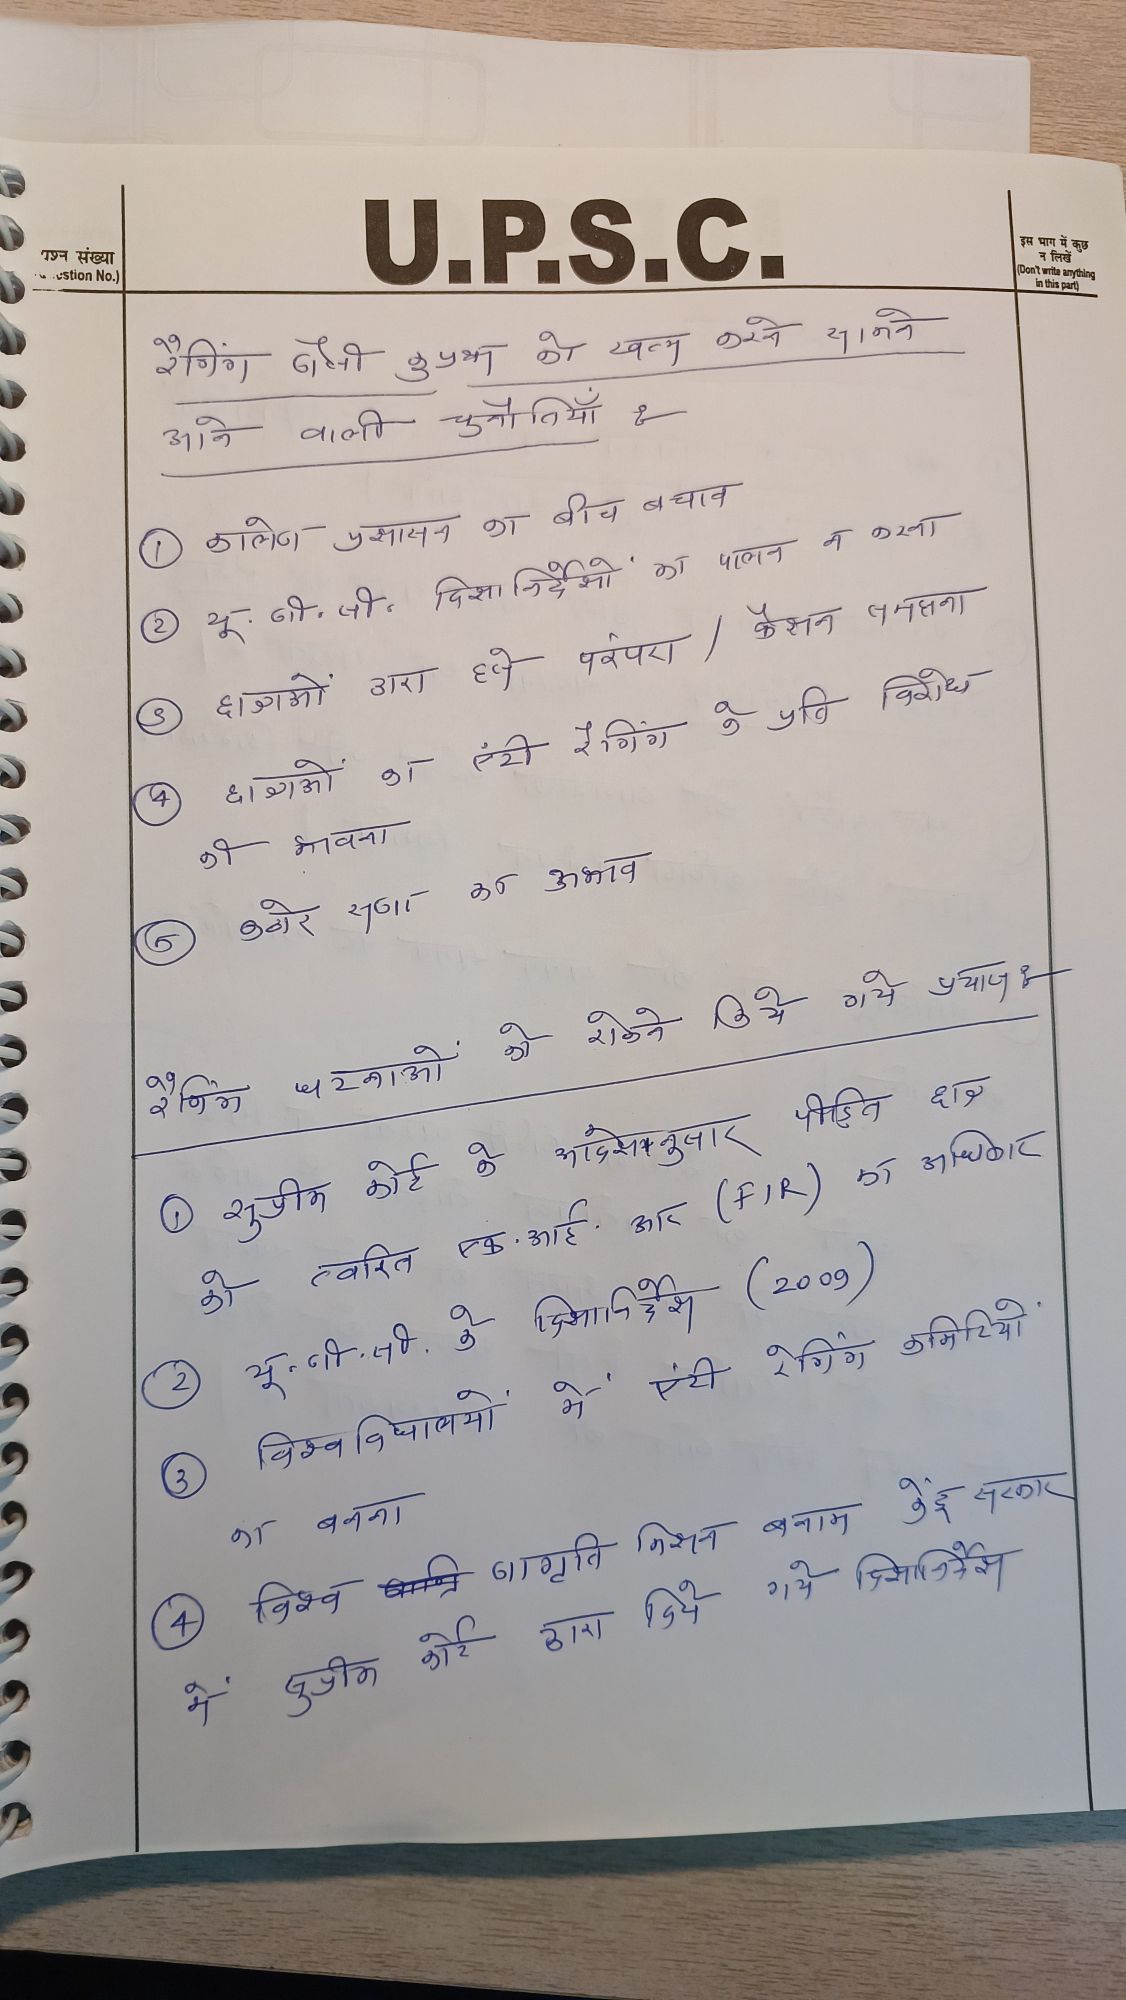 U.P.S.C.
प्रश्न संख्या
(Question No.)
इस भाग में कुछ
न लिखें
(Don't write anything
in this part)
रैगिंग जैसी कुप्रथा को खत्म करने सामने
आने वाली चुनौतियाँ :-
① कालेज प्रशासन का बीच बचाव
② यू. जी. सी. दिशानिर्देशों का पालन न करना
③ छात्राओं द्वारा इसे परंपरा / फैशन समझना
④ छात्राओं का एंटी रैगिंग के प्रति विरोध
की भावना
⑤ कठोर सजा का अभाव
रैगिंग घटनाओं को रोकने किये गये प्रयास :-
① सुप्रीम कोर्ट के आदेशानुसार पीड़ित छात्र
को त्वरित एफ. आई. आर (FIR) का अधिकार
② यू. जी. सी. के दिशानिर्देश (2009)
③ विश्वविद्यालयों में एंटी रैगिंग कमिटियों
का बनना
④ विश्व जागृति मिशन बनाम केंद्र सरकार
में सुप्रीम कोर्ट द्वारा दिये गये दिशानिर्देश